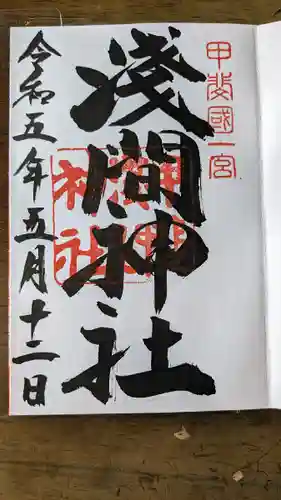 甲斐國一宮
淺間神社
淺間神社
令和五年五月十二日